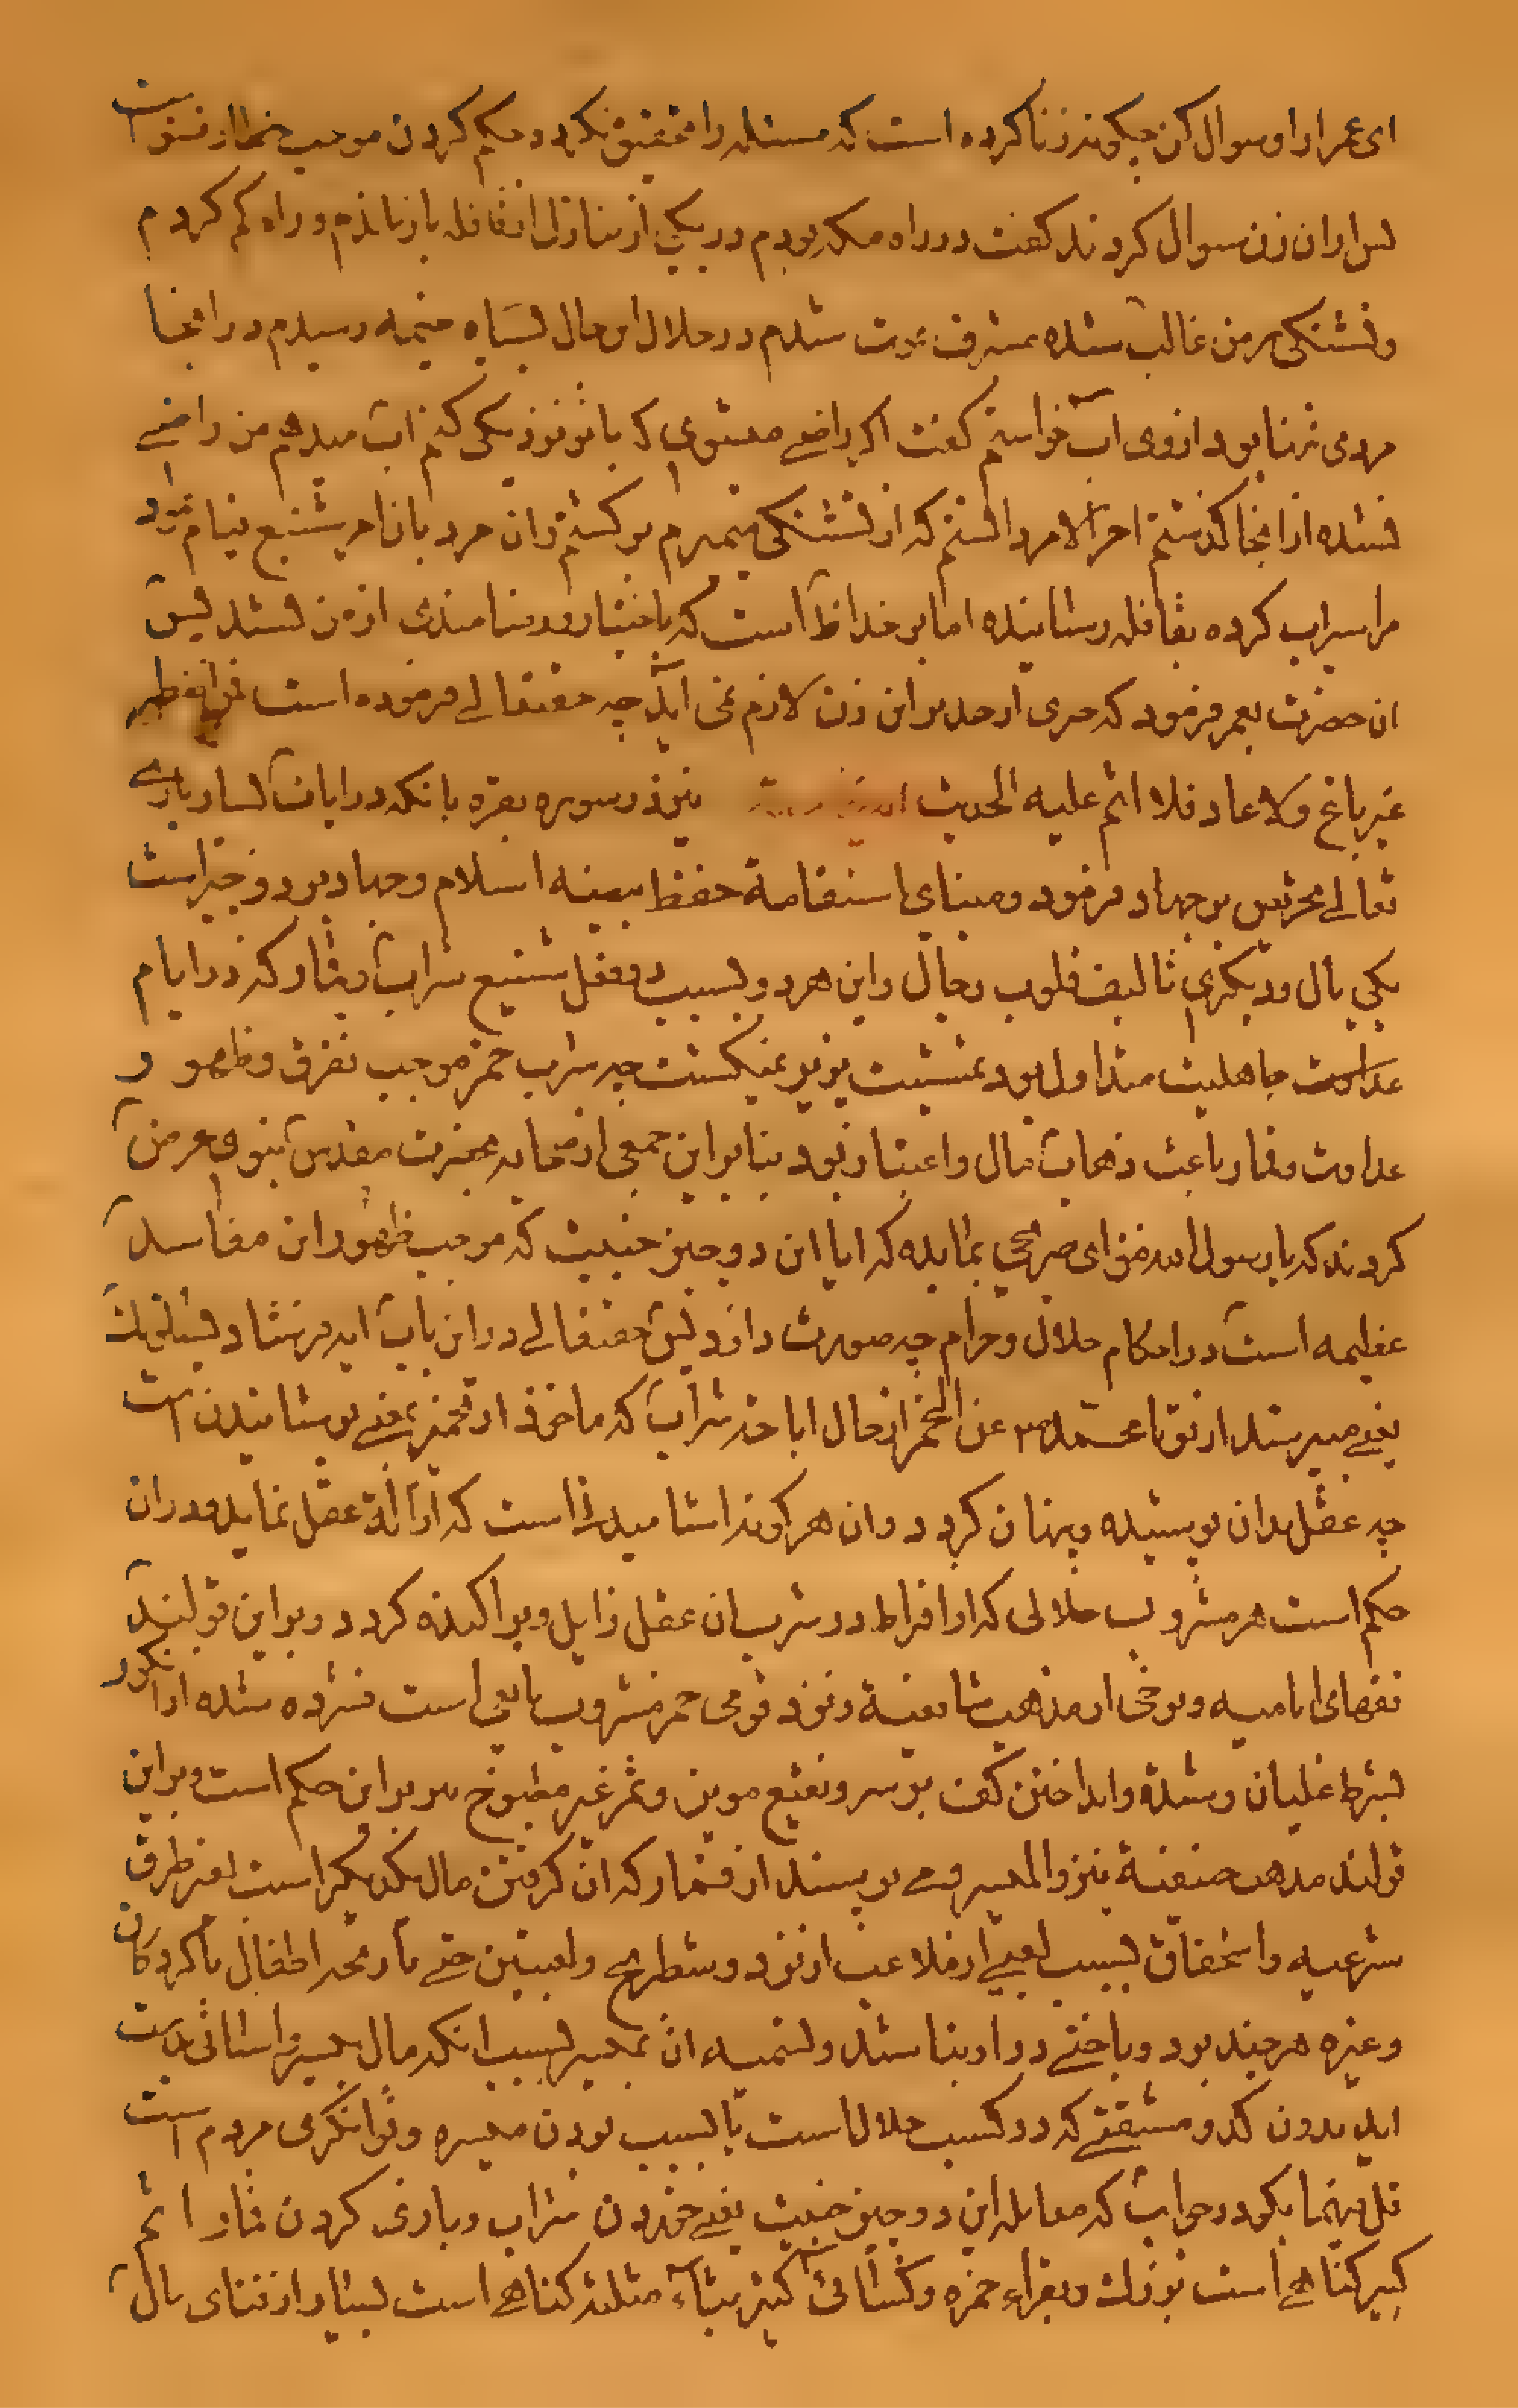 ای عمر از او سوال کن چگونه زنا کرده است که مسئله را تحقیق نکرد و حکم کردن موجب خطا از فتوی است
پس از ان زن سوال کردند گفت در راه مکه بودم در یکی از منازل از قافله باز ماندم و راه گم کردم
و تشنگی بر من غالب شده مشرف بموت شدم در خلال این حال بسیاه خیمه رسیدم در انجا
مردی تنها بود از وی آب خواستم گفت اگر راضی میشوی که با تو نزدیکی کنم آب میدهم من راضی
نشده از انجا گذشتم اخر الامر دانستم که از تشنگی میمیرم برگشتم و ان مرد بان امر شنیع قیام نمود
مرا سیراب کرده بقافله رسانیده اما بر خدا ظاهر است که باختیار و رضامندی از من نشد پس
ان حضرت بعمر فرمود که چیزی از حد بر این زن لازم نمی آید چه حقتعالی فرموده است فمن اضطر
غیر باغ ولا عاد فلا اثم علیه الحدیث نیز در سوره بقره بانکه در ایات بسیار باری
تعالی تحریص بر جهاد فرمود و مبنای استقامة حفظ بیضه اسلام و جهاد بر دو چیز است
یکی مال و دیگری تالیف قلوب رجال و این هر دو بسبب دو فعل شنیع شراب و قمار که در ایام
عداوت جاهلیت متداول بود بمشیت پذیر نمیگشت چه شرب خمر موجب تفرق و ظهور
عداوت و قمار باعث ذهاب مال و اعتبار بود بنا بر این جمعی از صحابه بحضرت مقدس نبوی عرض
کردند که یا رسول الله فتوای صریحی بما بده که ایا این دو چیز خبیث که موجب ظهور این مفاسد
عظیمه است در احکام حلال و حرام چه صورت دارد پس حقتعالی در این باب ایه فرستاد یسئلونک
یعنی میپرسند از تو یا محمد عن الخمر از حال اباحه شراب که ماخوذ از تخمیر بمعنی پوشانیدن است
چه عقل بدان پوشیده و پنهان گردد و ان هر گونه اشامیدنی است که ازاله عقل نماید و در ان
حکم است هر مشروب حلالی که از افراط در شرب ان عقل زایل و پراکنده گردد و بر این قولند
فقهای امامیه و برخی از مذهب شافعیة و نزد قومی خمر مشروب مایعی است فشرده شده از انگور
بشرط غلیان و شدة و انداختن کف بر سر و نقیع مویز و تمر غیر مطبوخ نیز بر این حکم است و بر این
قولند مذهب حنفیة نیز والمیسر و می پرسند از قمار که ان گرفتن مال یکدیگر است بغیر طرق
شرعیه و استحقاق بسبب لعبی از ملاعب از نرد و شطرنج و لعبتین حتی بازیچه اطفال با گردکان
و غیره هر چند برد و باختی در او بنا باشد و تسمیه ان بمیسر بسبب انکه مال بیسر و اسانی بدست
اید بدون کد و مشقتی که در کسب حلال است یا بسبب بودن میسره و توانگری مردم است
قل فیهما بگو در جواب که معامله این دو چیز خبیث یعنی خوردن شراب و بازی کردن قمار اثم
کبیر گناهی است بزرک و بقراء حمزه و کسائی کثیر بثاء مثلثه گناهی است بسیار از فنای مال